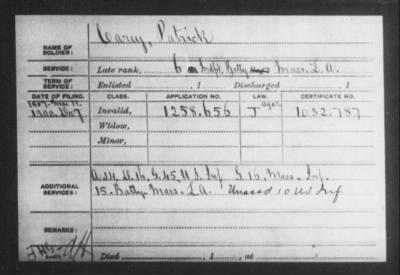 Carey, Patrick
NAME OF SOLDIER:
SERVICE: Late rank, 6 Indpt. Batty Mass. L. A.
TERM OF SERVICE: Enlisted , 1 Discharged , 1
DATE OF FILING. CLASS. APPLICATION NO. LAW. CERTIFICATE NO.
Invalid, 1258.656 1032.787
Widow,
Minor,
ADDITIONAL SERVICES: G. 45 U S Inf. G. 16, Mass. Inf.
15. Batty. Mass. L A. Unassd 10 Inf
REMARKS:
Died , 1 , at